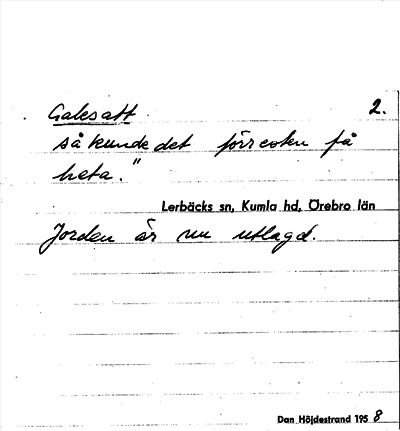 Galesatt 2.
så kunde det förresten få
heta."
Lerbäcks sn, Kumla hd, Örebro län
Jorden är nu utlagd.
Dan Höjdestrand 1958